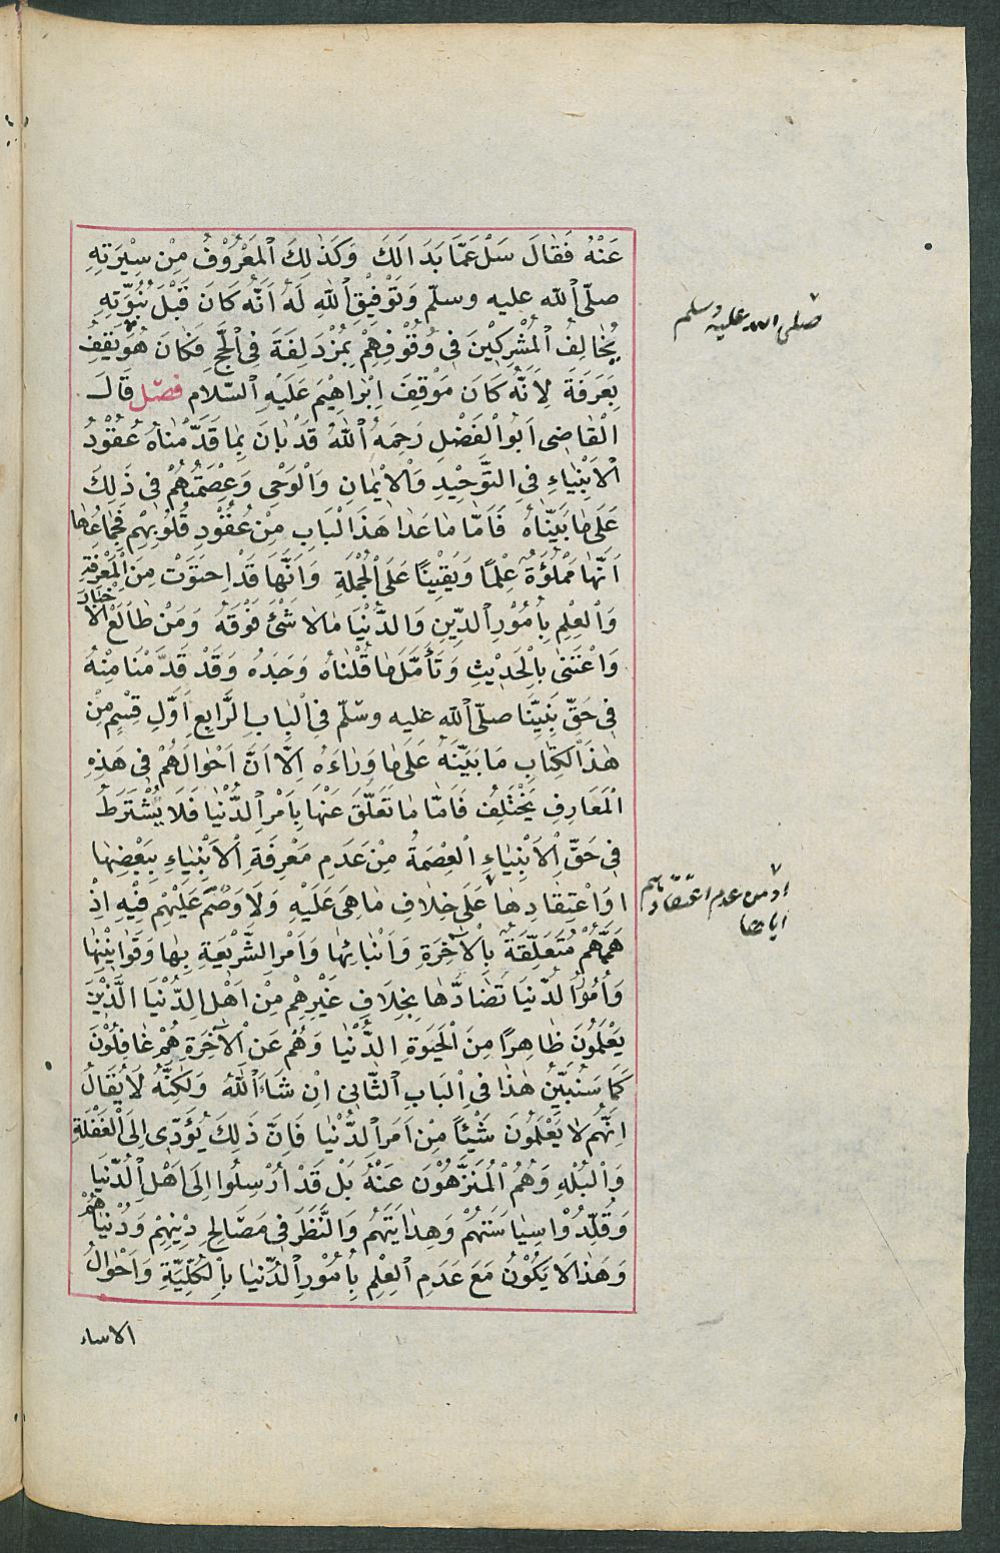 عَنْهُ فَقَالَ سَلْ عَمَّا بَدَالَكَ وَكَذٰلِكَ الْمَعْرُوْفُ مِنْ سِيْرَتِهِ
صلّى الله عليه وسلّم وَتَوْفِيْقِ اللّٰهِ لَهُ اَنَّهُ كَانَ قَبْلَ نُبُوَّتِهِ
صلى الله عليه وسلم
يُخَالِفُ الْمُشْرِكِيْنَ فِى وُقُوْفِهِمْ بِمُزْدَلِفَةَ فِى الْحَجِّ فَكَانَ هُوَ يَقِفُ
بِعَرَفَةَ لِاَنَّهُ كَانَ مَوْقِفَ اِبْرَاهِيْمَ عَلَيْهِ السَّلام فصل قَالَ
الْقَاضِى اَبُو الْفَضْلِ رَحِمَهُ اللّٰهُ قَدْ بَانَ بِمَا قَدَّمْنَاهُ عُقُوْدُ
الْاَنْبِيَاءِ فِى التَّوْحِيْدِ وَالْاِيْمَانِ وَالْوَحْىِ وَعِصْمَتُهُمْ فِى ذَلِكَ
عَلَى مَا بَيَّنَّاهُ فَاَمَّا مَا عَدَا هٰذَا الْبَابِ مِنْ عُقُوْدِ قُلُوْبِهِمْ فَجِمَاعُهَا
اَنَّهَا مَمْلُوْءَةٌ عِلْمًا وَيَقِيْنًا عَلَى الْجُمْلَةِ وَاَنَّهَا قَدْ اِحتَوَتْ مِنَ الْمَعْرِفَةِ
وَالْعِلْمِ بِأُمُوْرِ الدِّيْنِ وَالدُّنْيَا مَا لَا شَئَ فَوْقَهُ وَمَنْ طَالَعَ الْاَخْبَارَ
وَاعْتَنٰى بِالْحَدِيْثِ وَتَأَمَّلَ مَا قُلْنَاهُ وَجَدَهُ وَقَدْ قَدَّمْنَا مِنْهُ
فِى حَقِّ نَبِيِّنَا صلّى الله عليه وسلّم فِى الْبَابِ الرَّابِعِ اَوَّلِ قِسْمٍ مِنْ
هٰذَا الْكِتَابِ مَا بَيَّنَهُ عَلَى مَا وَرَاءَهُ اِلَّا اَنَّ اَحْوَالَهُمْ فِى هَذِهِ
الْمَعَارِفِ يَخْتَلِفُ فَاَمَّا مَا تَعَلَّقَ عَنْهَا بِاَمْرِ الدُّنْيَا فَلَا يُشْتَرَطُ
فِى حَقِّ الْاَنْبِيَاءِ الْعِصْمَةُ مِنْ عَدَمِ مَعْرِفَةِ الْاَنْبِيَاءِ بِبَعْضِهَا
اَوَاعْتِقَادِهَا عَلَى خِلَافِ مَا هِىَ عَلَيْهِ وَلَا وَصْمَ عَلَيْهِمْ فِيْهِ اِذْ
او من عدم اعتقادهم
اياها
هِمَّهُمْ مُتَعَلِّقَةٌ بِالْاٰخِرَةِ وَاَنْبَائِهَا وَاَمْرِ الشَّرِيْعَةِ بِهَا وَقَوَانِيْنِهَا
وَاُمُوْرُ الدُّنْيَا تُضَادُّهَا بِخِلَافِ غَيْرِهِمْ مِنْ اَهْلِ الدُّنْيَا الَّذِيْنَ
يَعْلَمُوْنَ ظَاهِراً مِنَ الْحَيٰوةِ الدُّنْيَا وَهُمْ عَنِ الْاٰخِرَةِ هُمْ غَافِلُوْنَ
كَمَا سَنُبَيِّنُ هٰذَا فِى الْبَابِ الثَّانِى اِنْ شَاءَ اللّٰهُ وَلٰكِنَّهُ لَا يُقَالُ
اِنَّهُمْ لَا يَعْلَمُوْنَ شَيْئًا مِنْ اَمْرِ الدُّنْيَا فَاِنَّ ذَلِكَ يُؤَدِّى اِلَى الْغَفْلَةِ
وَالْبُلْهِ وَهُمُ الْمُنَزَّهُوْنَ عَنْهُ بَلْ قَدْ اُرْسِلُوا اِلَى اَهْلِ الدُّنْيَا
وَقُلِّدُوْا سِيَاسَتَهُمْ وَهِدَايَتَهُمْ وَالنَّظَرَ فِى مَصَالِحِ دِيْنِهِمْ وَدُنْيَاهُمْ
وَهَذَا لَا يَكُوْنُ مَعَ عَدَمِ الْعِلْمِ بِأُمُوْرِ الدُّنْيَا بِالْكُلِّيَّةِ وَاَحْوَالُ
الانبياء